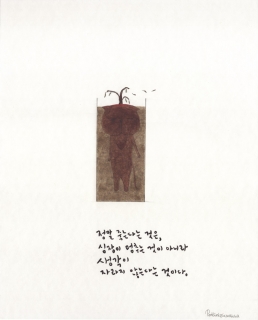 정말 죽는다는 것은,
심장이 멈추는 것이 아니라
생각이
자라지 않는다는 것이다.